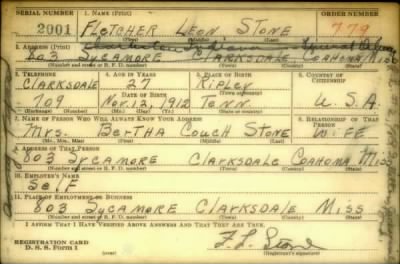 SERIAL NUMBER 1. NAME (Print) ORDER NUMBER
2001 FLETCHER LEON STONE 779
2. ADDRESS (Print)
803 SYCAMORE CLARKSDALE COAHOMA MISS
(Number and street or R. F. D. number) (Town) (County) (State)
3. TELEPHONE 4. AGE IN YEARS 5. PLACE OF BIRTH 6. COUNTRY OF CITIZENSHIP
CLARKSDALE 27 RIPLEY
DATE OF BIRTH (Town or county)
709 Nov. 12, 1912 TENN. U.S.A.
(Exchange) (Number) (Mo.) (Day) (Yr.) (State or country)
7. NAME OF PERSON WHO WILL ALWAYS KNOW YOUR ADDRESS 8. RELATIONSHIP OF THAT PERSON
MRS. BERTHA COUCH STONE WIFE
(Mr., Mrs., Miss) (First) (Middle) (Last)
9. ADDRESS OF THAT PERSON
803 SYCAMORE CLARKSDALE COAHOMA MISS
(Number and street or R. F. D. number) (Town) (County) (State)
10. EMPLOYER'S NAME
SELF
11. PLACE OF EMPLOYMENT OR BUSINESS
803 SYCAMORE CLARKSDALE MISS
(Number and street or R. F. D. number) (Town) (County) (State)
I AFFIRM THAT I HAVE VERIFIED ABOVE ANSWERS AND THAT THEY ARE TRUE.
REGISTRATION CARD
D. S. S. Form 1 F L Stone
(Registrant's signature)